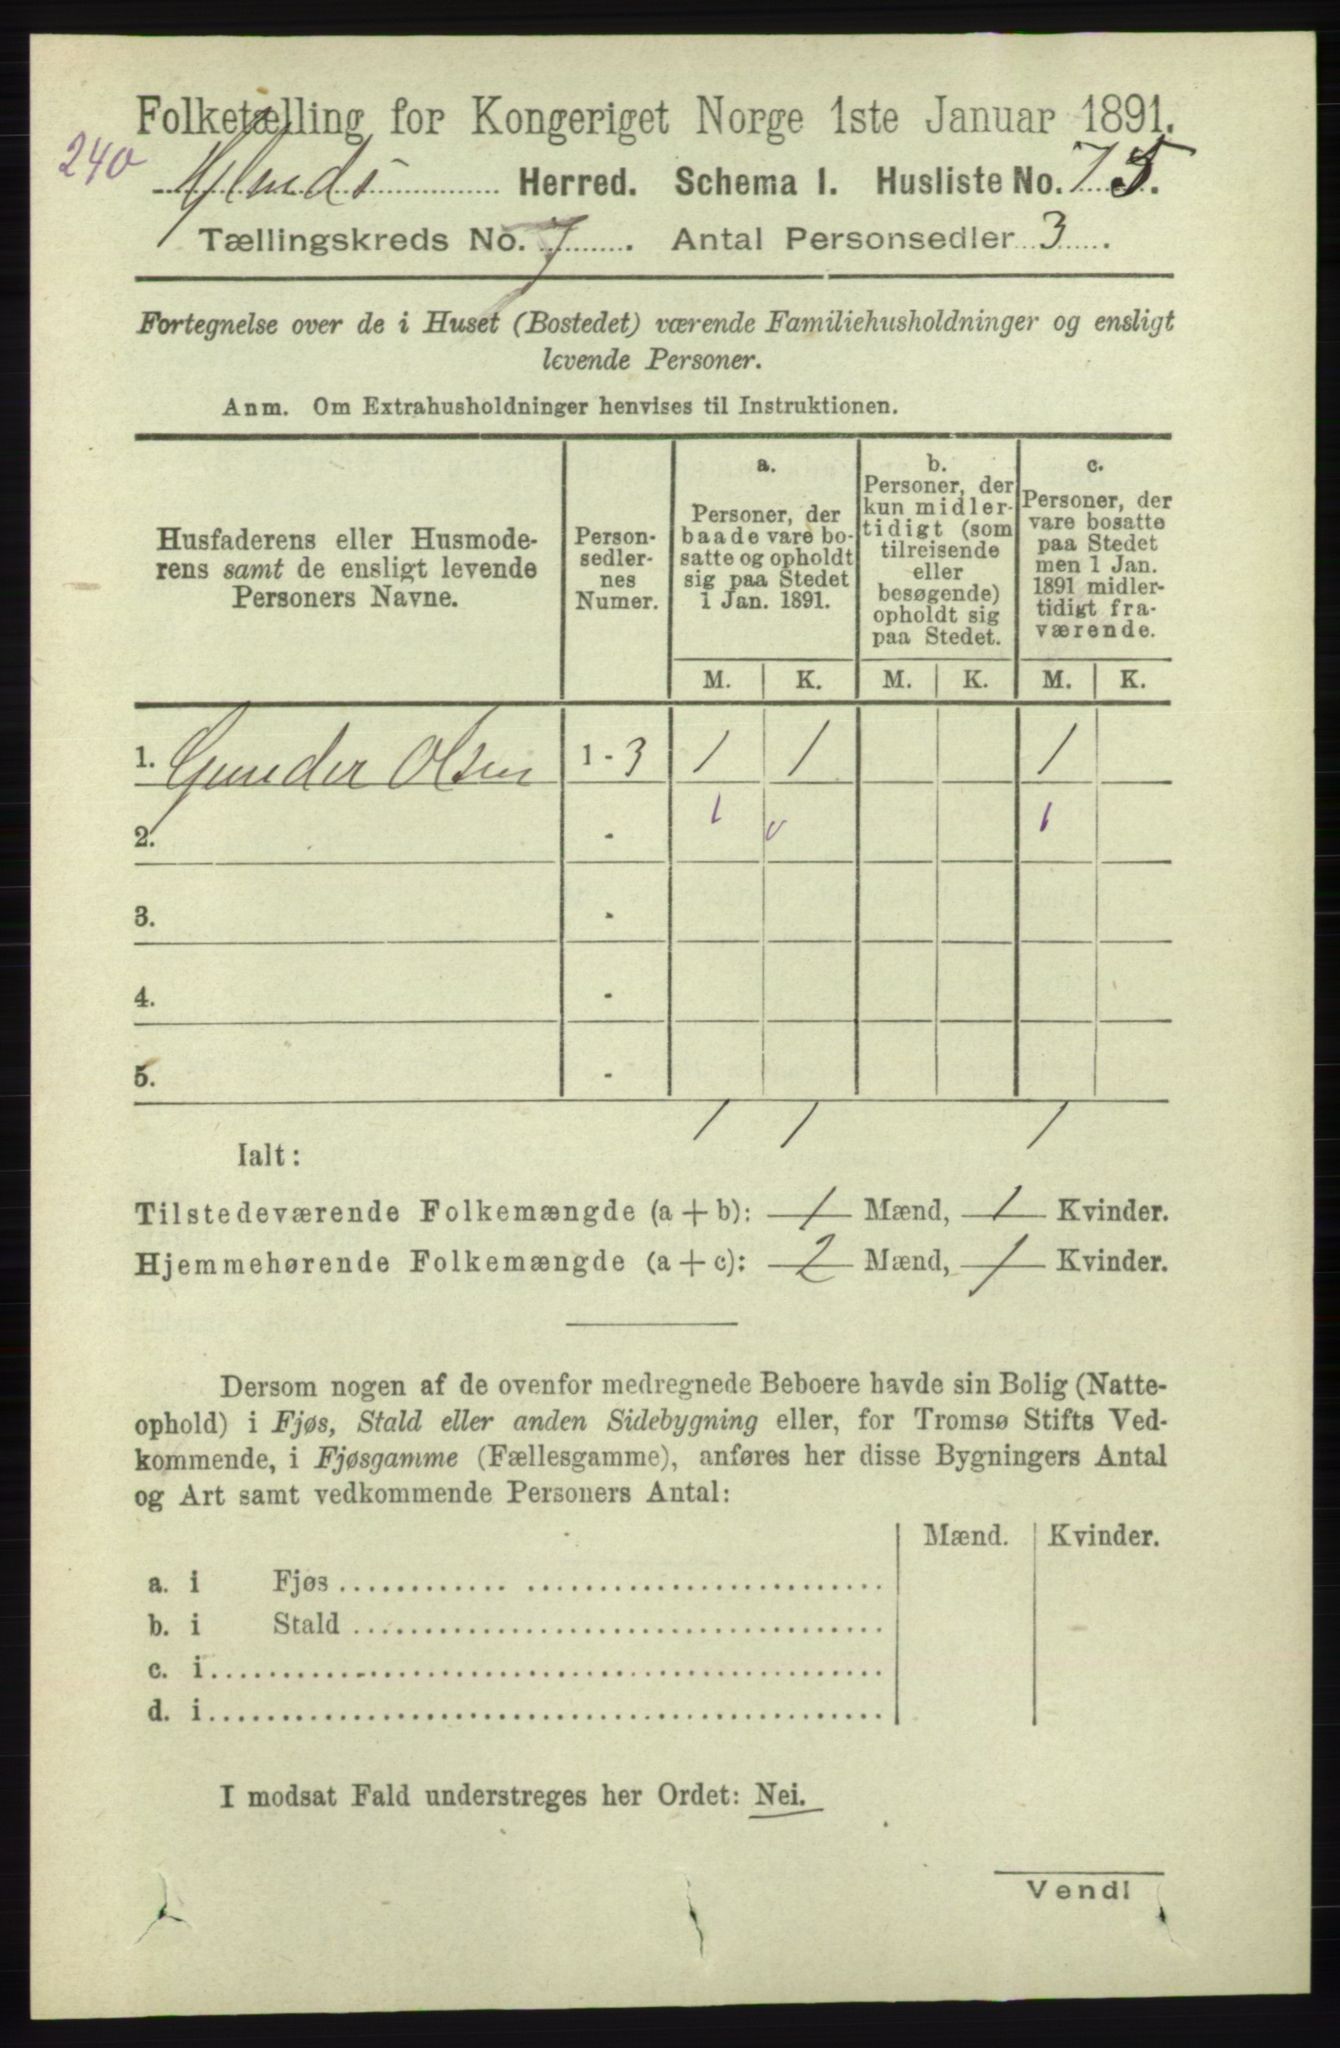 Folketælling for Kongeriget Norge 1ste Januar 1891.
240
Herred. Schema 1. Husliste No. 75.
Tællingskreds No. 7. Antal Personsedler 3.
Fortegnelse over de i Huset (Bostedet) værende Familiehusholdninger og ensligt
levende Personer.
Anm. Om Extrahusholdninger henvises til Instruktionen.
Husfaderens eller Husmode-
rens samt de ensligt levende
Personers Navne.
Person-
sedler-
nes
Numer.
a.
Personer, der
baade vare bo-
satte og opholdt
sig paa Stedet
1 Jan. 1891.
b.
Personer, der
kun midler-
tidigt (som
tilreisende
eller
besøgende)
opholdt sig
paa Stedet.
c.
Personer, der
vare bosatte
paa Stedet
men 1 Jan.
1891 midler-
tidigt fra-
værende.
M. K. M. K. M. K.
1. Gunder Olsen 1 - 3 1 1 1
2. - 1 0 1
3. -
4. -
5. -
1 1 1
Ialt:
Tilstedeværende Folkemængde (a + b): 1 Mænd, 1 Kvinder.
Hjemmehørende Folkemængde (a + c): 2 Mænd, 1 Kvinder.
Dersom nogen af de ovenfor medregnede Beboere havde sin Bolig (Natte-
ophold) i Fjøs, Stald eller anden Sidebygning eller, for Tromsø Stifts Ved-
kommende, i Fjøsgamme (Fællesgamme), anføres her disse Bygningers Antal
og Art samt vedkommende Personers Antal:
Mænd. Kvinder.
a. i Fjøs
b. i Stald
c. i
d. i
I modsat Fald understreges her Ordet: Nei.
Vend!